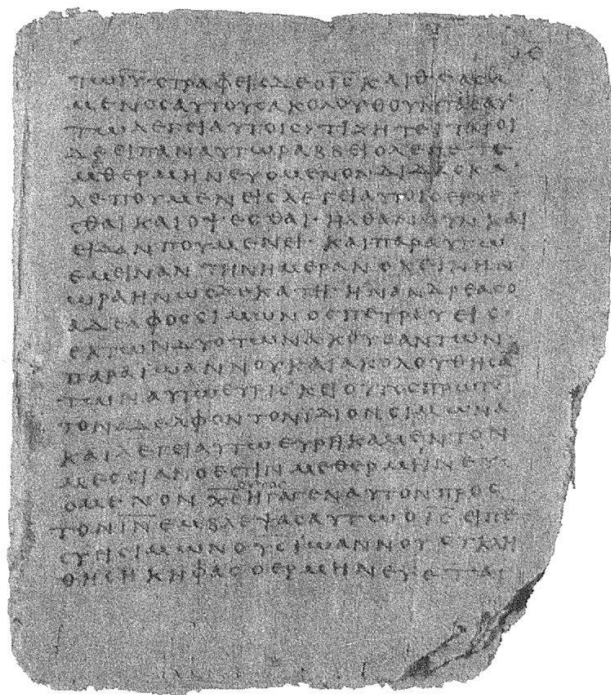 ΤΩΙΥ·ϹΤΡΑΦΕΙϹΔΕΟΙϹΚΑΙΘΕΑϹΑ
ΜΕΝΟϹΑΥΤΟΥϹΑΚΟΛΟΥΘΟΥΝΤΑϹΑΥ
ΤΩΛΕΓΕΙΑΥΤΟΙϹ·ΤΙΖΗΤΕΙΤΕ·ΟΙ
ΔΕΕΙΠΑΝΑΥΤΩΡΑΒΒΕΙΟΛΕΓΕΤΕ
ΜΘΕΡΜΗΝΕΥΟΜΕΝΟΝΔΙΔΑϹΚΑ
ΛΕΠΟΥΜΕΝΕΙϹΛΕΓΕΙΑΥΤΟΙϹΕΡΧΕ
ϹΘΑΙΚΑΙΟΨΕϹΘΑΙ·ΗΛΘΑΝΟΥΝΚΑΙ
ΕΙΔΑΝΠΟΥΜΕΝΕΙ·ΚΑΙΠΑΡΑΥΤΩ
ΕΜΕΙΝΑΝΤΗΝΗΜΕΡΑΝΕΚΕΙΝΗΝ
ΩΡΑΗΝΩϹΔΕΚΑΤΗ·ΗΝΑΝΔΡΕΑϹΟ
ΑΔΕΛΦΟϹϹΙΜΩΝΟϹΠΕΤΡΟΥΕΙϹ·
ΕΚΤΩΝΔΥΟΤΩΝΑΚΟΥϹΑΝΤΩΝ
ΠΑΡΑΙΩΑΝΝΟΥΚΑΙΑΚΟΛΟΥΘΗϹΑ
ΤΩΝΑΥΤΩΕΥΡΙϹΚΕΙΟΥΤΟϹΠΡΩΤΟ
ΤΟΝΑΔΕΛΦΟΝΤΟΝΙΔΙΟΝϹΙΜΩΝΑ
ΚΑΙΛΕΓΕΙΑΥΤΩΕΥΡΗΚΑΜΕΝΤΟΝ
ΜΕϹϹΙΑΝΟΕϹΤΙΝΜΕΘΕΡΜΗΝΕΥ
ΟΥΤΟϹ
ΟΜΕΝΟΝΧϹΗΓΑΓΕΝΑΥΤΟΝΠΡΟϹ
ΤΟΝΙΝΕΜΒΛΕΨΑϹΑΥΤΩΟΙϹΕΙΠΕ
ϹΥΕΙϹΙΜΩΝΟΥϹΙΩΑΝΝΟΥϹΥΚΛΗ
ΘΗϹΗΚΗΦΑϹΟΕΡΜΗΝΕΥΕΤΑΙ